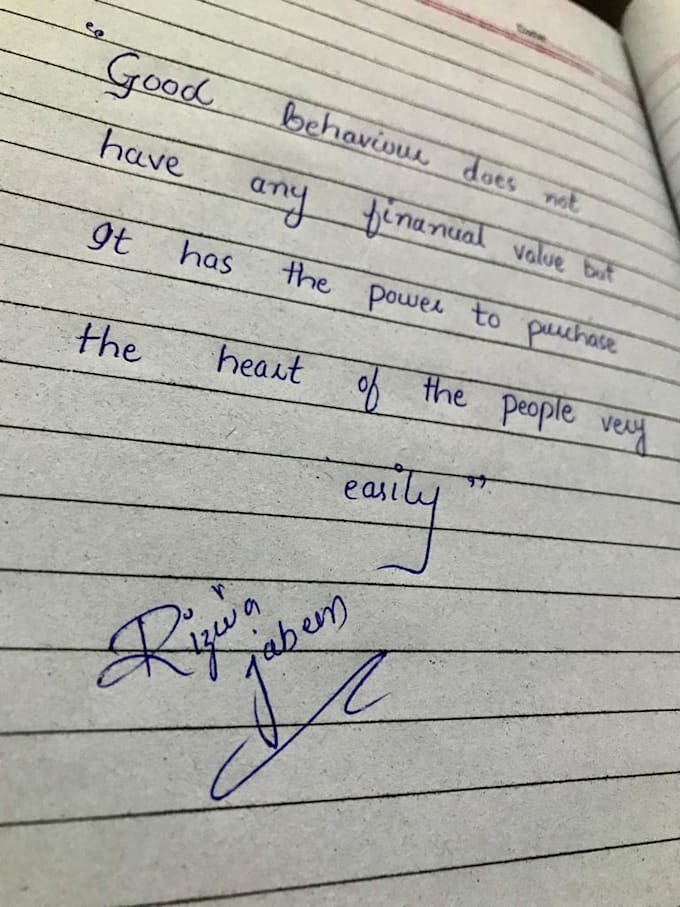 "Good behaviour does not
have any finanual value but
It has the power to purchase
the heart of the people very
easily"
Rizwa
jabeen